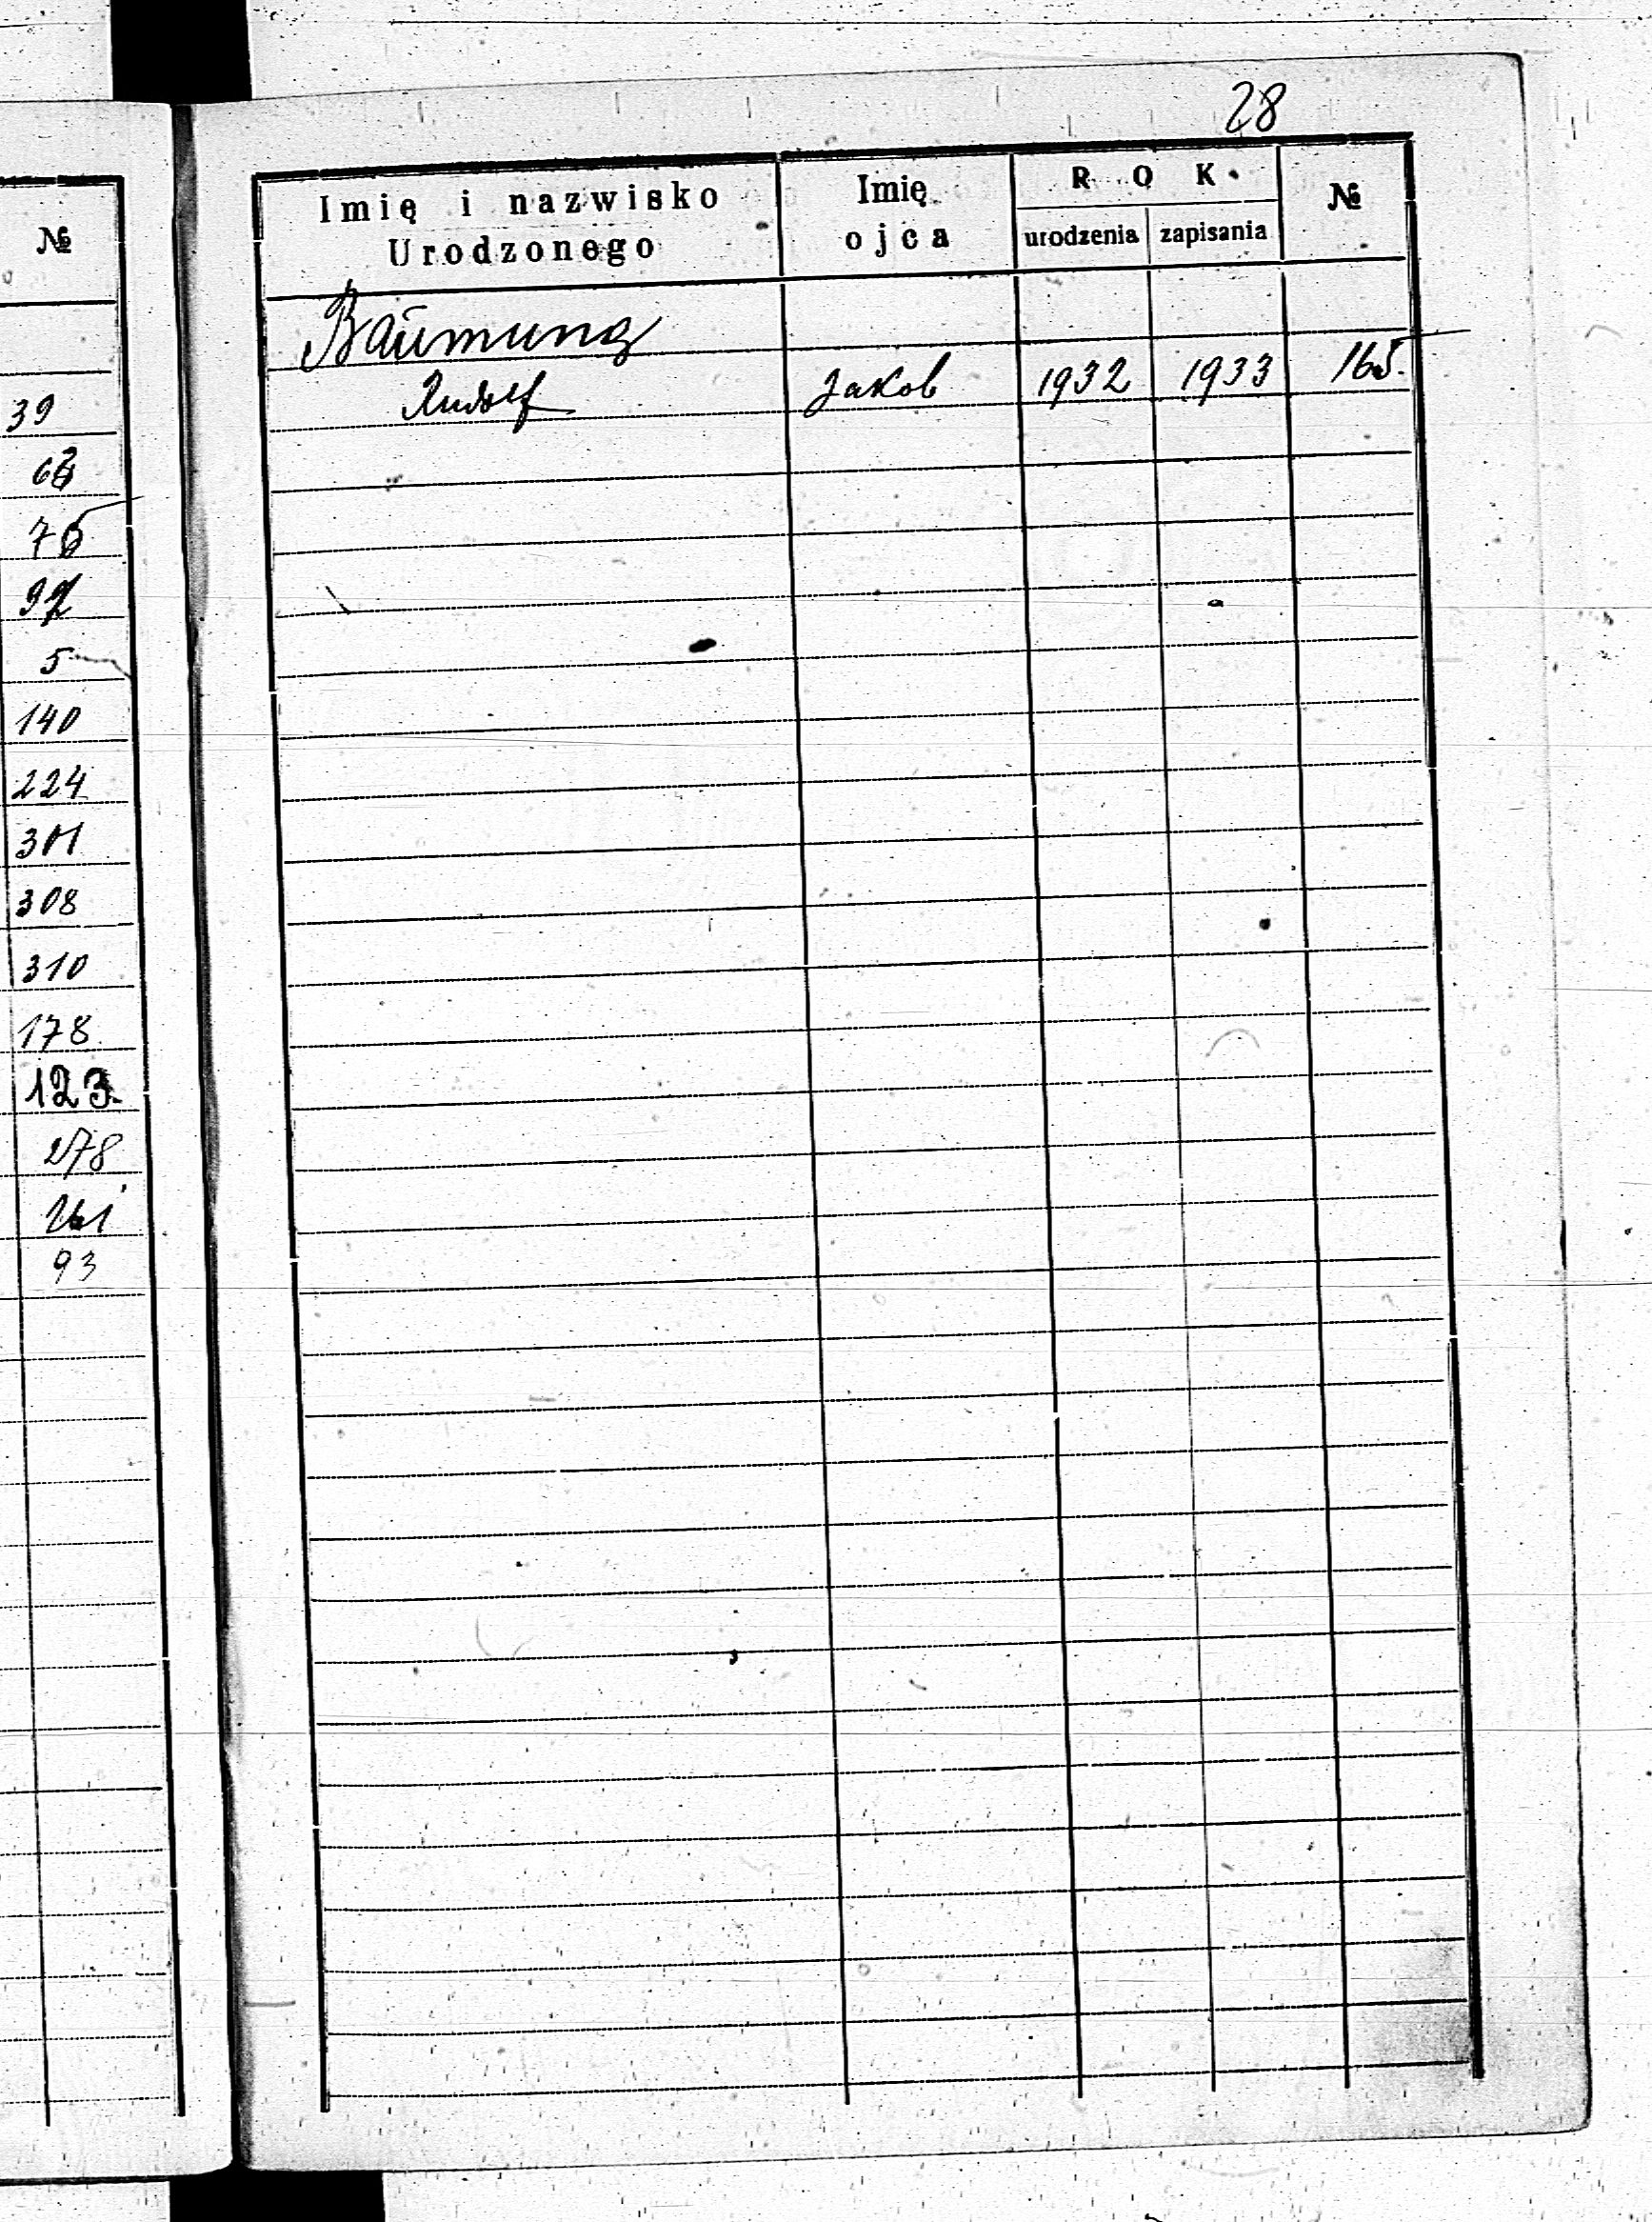 №
39
140
224
301
308
310
178
123.
278
261
93
28
Imię i nazwisko Urodzonego
Imię ojca
ROK
urodzenia
zapisania
№
Baumung
Rudolf Jakob 1932 1933 165.